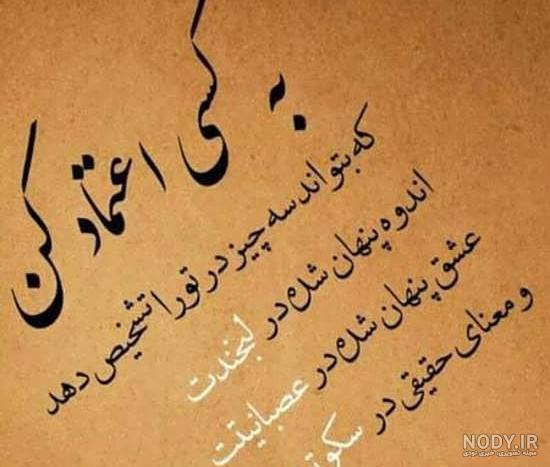 به کسی اعتماد کن
که بتواند سه چیز در تو را تشخیص دهد
اندوه پنهان شده در لبخندت
عشق پنهان شده در عصبانیتت
و معنای حقیقی در
NODY.IR
مجله تصویری، خبری نودی